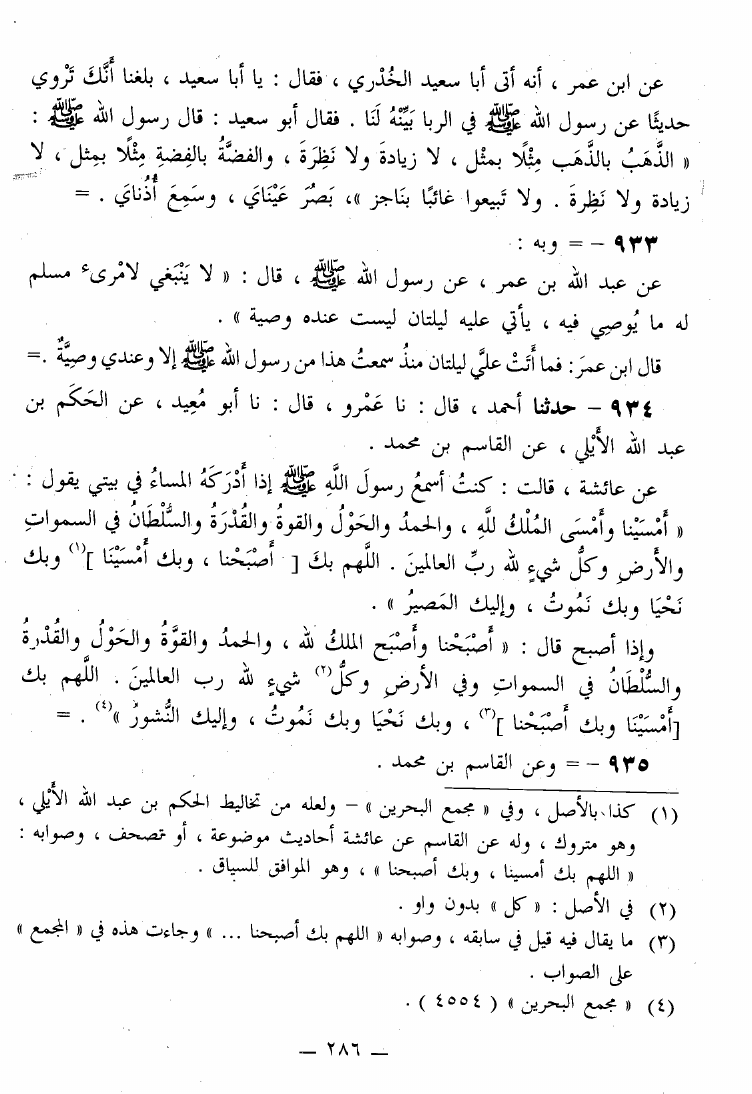 عن ابن عمر ، أنه أتى أبا سعيد الخُدْري ، فقال : يا أبا سعيد ، بلغنا أَنَّكَ تَرْوي
حديثًا عن رسول الله ﷺ في الربا بَيِّنْهُ لَنَا . فقال أبو سعيد : قال رسول الله ﷺ :
« الذَّهَبُ بالذَّهَب مِثْلًا بمثْل ، لا زيادةَ ولا نَظِرَةَ ، والفضَّةُ بالفِضةِ مِثْلًا بِمِثل ، لا
زيادة ولا نَظِرةَ . ولا تَبيعوا غائبًا بنَاجز »، بَصُرَ عَيْنَايَ ، وسَمِعَ أُذُنايَ . =
٩٣٣ - = وبه :
عن عبد الله بن عمر ، عن رسول الله ﷺ ، قال : « لا يَنْبَغي لامْرىء مسلم
له ما يُوصِي فيه ، يأتي عليه ليلتان ليست عنده وصية » .
قال ابن عمرَ : فما أَتَتْ عليَّ ليلتان منذُ سمعتُ هذا من رسول الله ﷺ إلا وعندي وصِيَّةٌ .=
٩٣٤ - حدثنا أحمد ، قال : نا عَمْرو ، قال : نا أبو مُعِيد ، عن الحَكَم بن
عبد الله الأَيْلي ، عن القاسم بن محمد .
عن عائشة ، قالت : كنتُ أسمعُ رسولَ اللَّهِ ﷺ إذا أَدْرَكَهُ المساءُ في بيتي يقول :
« أَمْسَيْنا وأَمْسَى المُلْكُ للَّهِ ، والحمدُ والحَوْلُ والقوةُ والقُدْرَةُ والسُّلْطَانُ في السمواتِ
والأرضِ وكلُّ شيءٍ لله ربِّ العالمينَ . اللَّهم بكَ [ أَصْبَحْنا ، وبك أَمْسَيْنَا ](١) وبك
نَحْيَا وبك نَمُوتُ ، وإليك المَصيرُ » .
وإذا أصبح قال : « أَصْبَحْنا وأَصْبَح الملكُ لله ، والحمدُ والقوَّةُ والحَوْلُ والقُدْرةُ
والسُّلْطَانُ في السمواتِ وفي الأرضِ وكلُّ(٢) شيءٍ لله رب العالمينَ . اللَّهم بك
[أَمْسَيْنَا وبك أَصْبَحْنا ](٣) ، وبك نَحْيَا وبك نَمُوتُ ، وإليك النُّشورُ »(٤) . =
٩٣٥ - = وعن القاسم بن محمد .
(١) كذا بالأصل ، وفي « مجمع البحرين » - ولعله من تخاليط الحكم بن عبد الله الأَيْلي ،
وهو متروك ، وله عن القاسم عن عائشة أحاديث موضوعة ، أو تصحف ، وصوابه :
« اللهم بك أمسينا ، وبك أصبحنا » ، وهو الموافق للسياق .
(٢) في الأصل : « كل » بدون واو .
(٣) ما يقال فيه قيل في سابقه ، وصوابه « اللهم بك أصبحنا ... » وجاءت هذه في « المجمع »
على الصواب .
(٤) « مجمع البحرين » ( ٤٥٥٤ ) .
— ٢٨٦ —